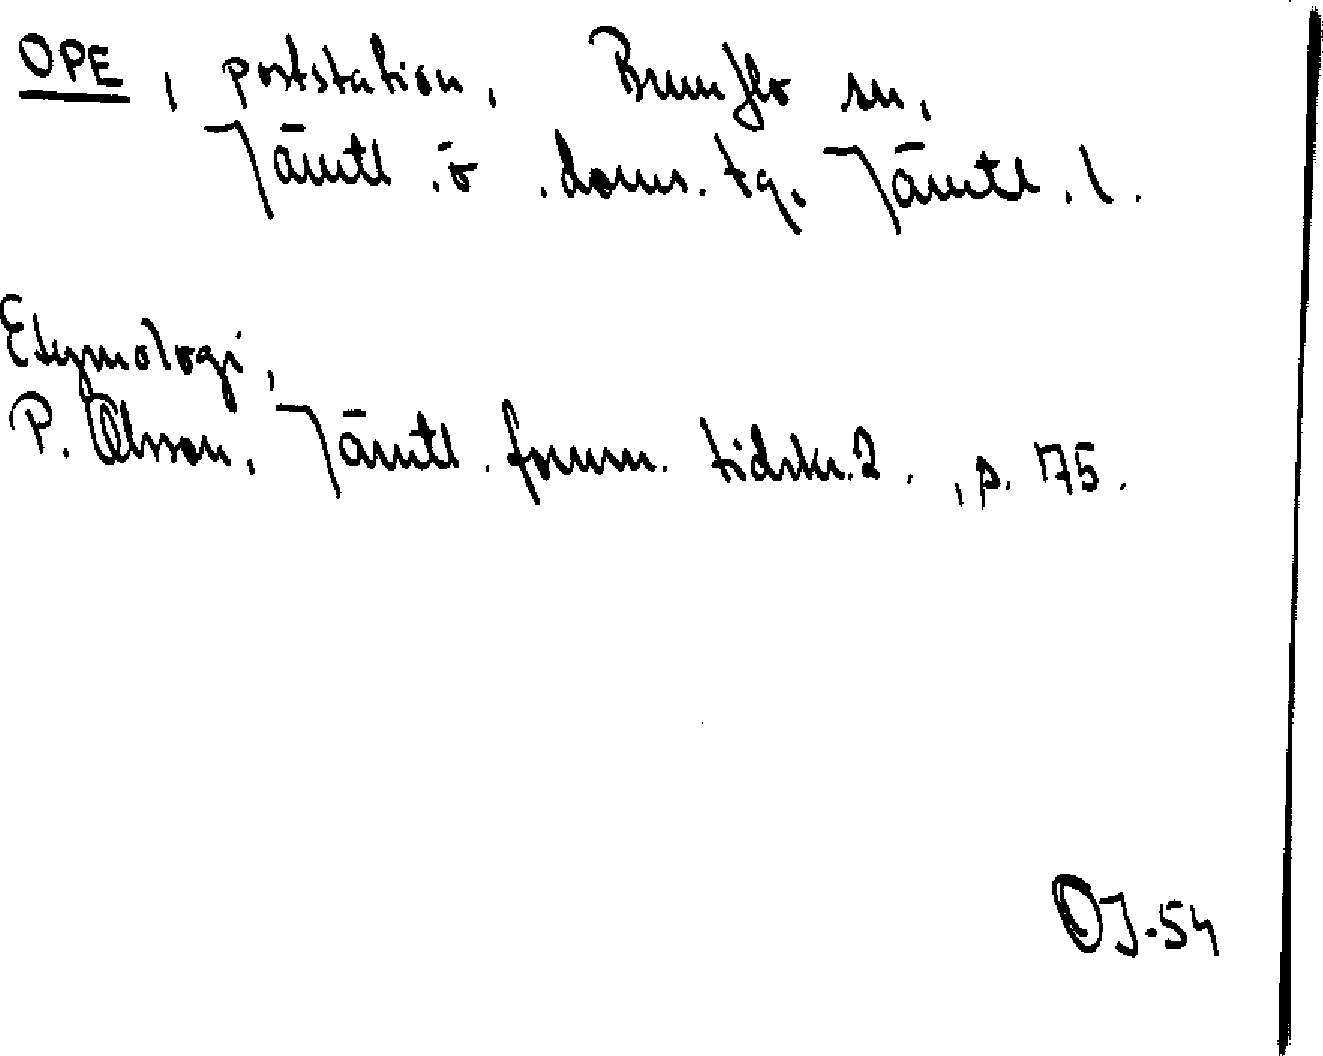 OPE, poststation, Brunflo sn,
Jämtl. ö. doms. tg. Jämtl. l.
Etymologi,
P. Olsson, Jämtl. fornm. tidskr. 2., s. 175.
OJ-54